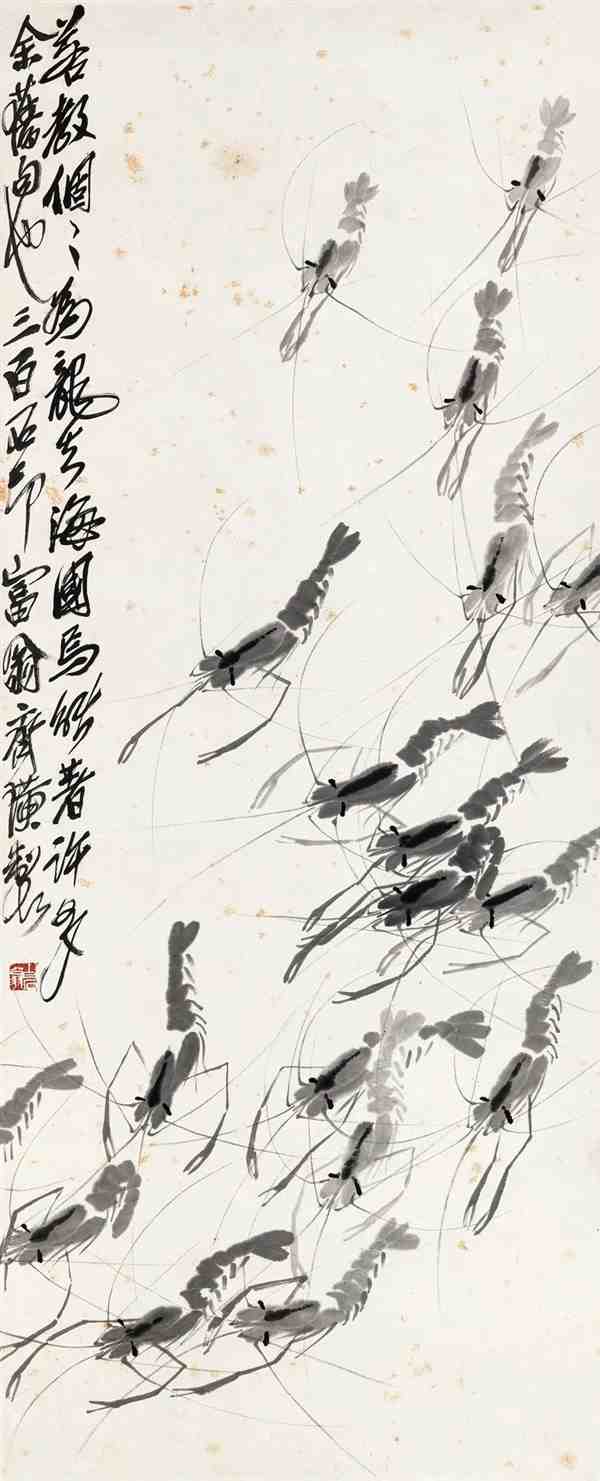 若教個〻為龍去海國焉能著許多
余舊句也三百石印富翁齊璜製